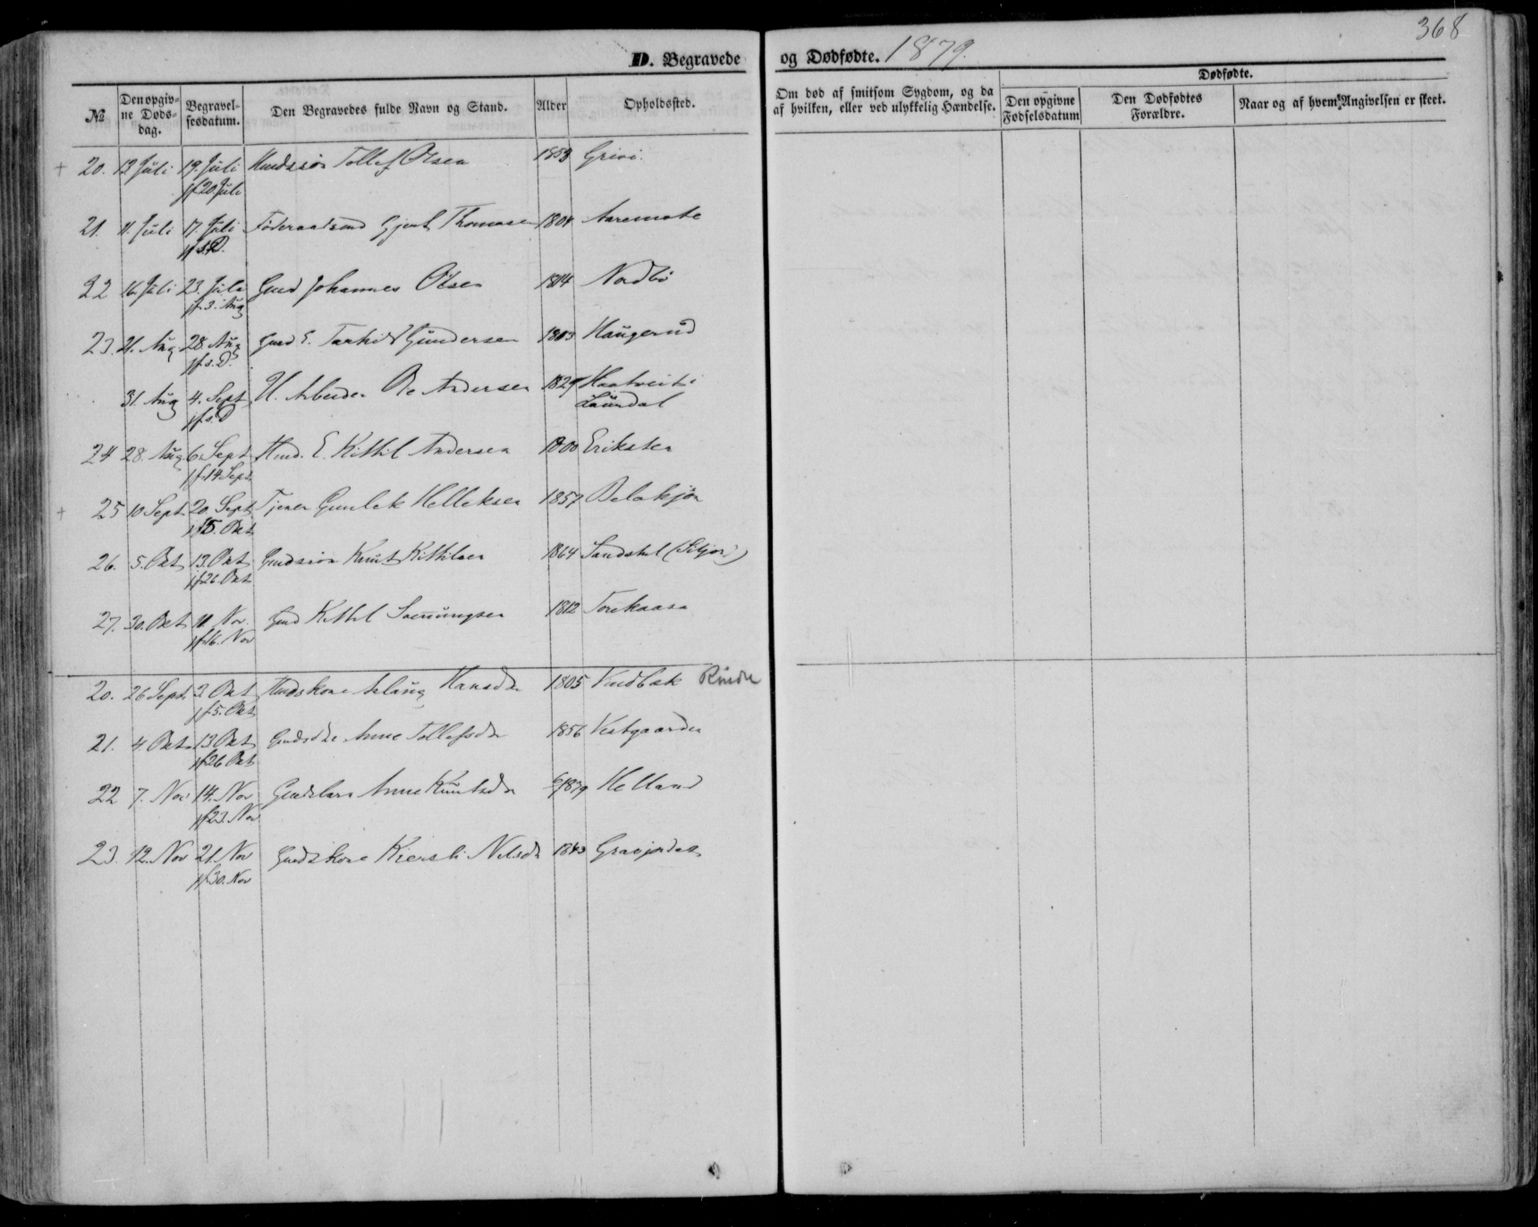 368
D. Begravede og Dødfødte. 1879.
Dødfødte.
№ Den opgivne Dødsdag. Begravelsesdatum. Den Begravedes fulde Navn og Stand. Alder Opholdssted. Om død af smitsom Sygdom, og da af hvilken, eller ved ulykkelig Hændelse. Den opgivne Fødselsdatum Den Dødfødtes Forældre. Naar og af hvem Angivelsen er skeet.
+ 20. 12 Juli 19. Juli Tollef Olsen 1853 Grivi
jf 20. Juli
21. 11. Juli 17. Juli Thomasen 1804 Aaremote
jf s. D.
22 16. Juli 23. Juli Gmd Johannes Olsen 1804 Nordbö
jf 3. Aug
23. 21. Aug 28. Aug Gmd E. Gundersen 1803 Haugerud
jf s. D.
31 Aug 4. Sept U. Arbeider Ole Andersen 1829
jf s. D Laurdal
24 28. Aug 6. Sept Hmd. E. Kittil Andersen 1800 Eriksten
jf 14 Sept
+ 25 10 Sept 20. Sept Tjener Gunlek Helleksen 1857
jf 5. Okt
26. 5. Okt 13. Okt Gmdssön Knut Kittilsen 1864
jf 26 Okt
27. 30. Okt 11. Nov. Gmd Kittil 1812 Torekaasa
jf 16. Nov
20. 26 Sept. 3. Okt Hmdskone Aslaug Hansdr 1805 Vindlæk
jf 5. Okt
21. 4 Okt 13 Okt Gmdsdtr Anne Tollefsdr 1856 Vestgaarden
jf 26 Okt
22 7. Nov 14. Nov Gmdsbarn Anne Knutsdr 1879 Helland
jf 23. Nov
23. 12. Nov 21. Nov Gmdskone Kiersti Nilsdr 1843
jf 30. Nov